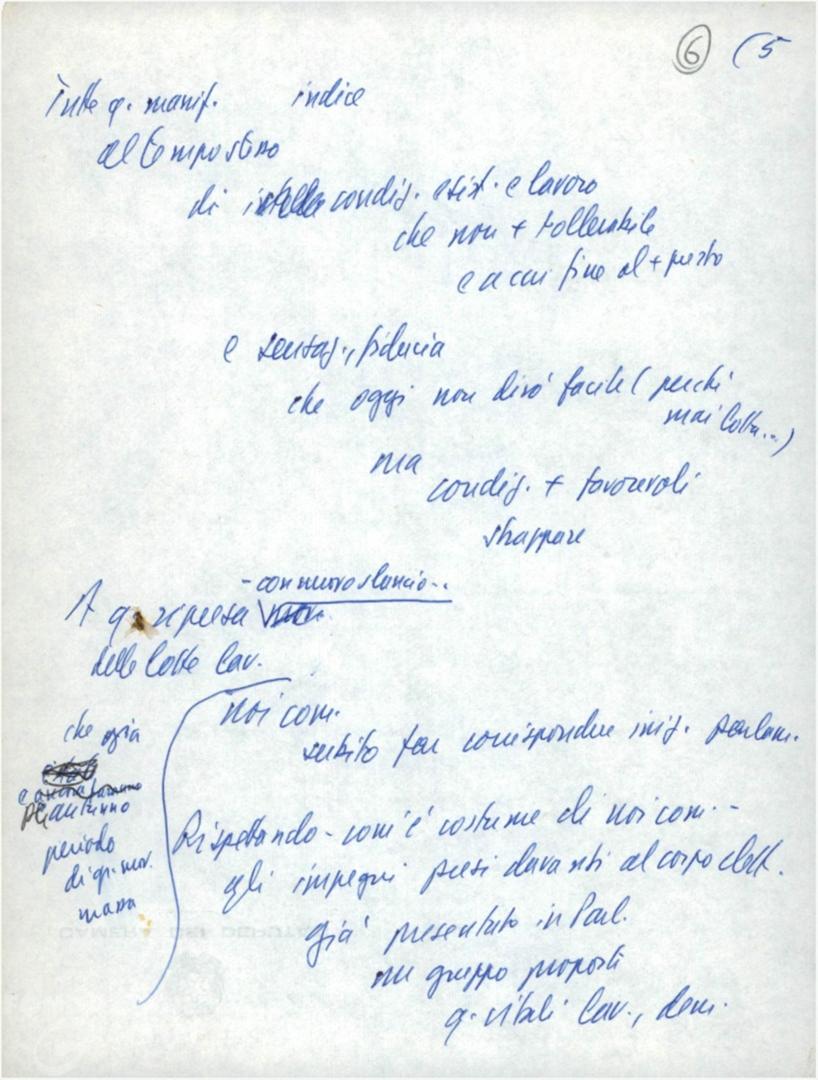 6 (5
Tutte q. manif. indice
al tempo stesso
di condiz. esist. e lavoro
che non + tollerabile
e a cui fine al + presto
e sensaz., fiducia
che oggi non dirò facile (perché
mai lotta...)
ma
condiz. + favorevoli
strappare
- con nuovo slancio..
A q. ripresa
delle lotte lav.
noi com.
subito far corrispondere iniz. parlam.
che già
autunno
periodo
di gr. mov.
massa
Rispettando - com'è costume di noi com. -
gli impegni presi davanti al corpo elett.
già presentato in Parl.
un gruppo proposte
q. vitali lav., dem.